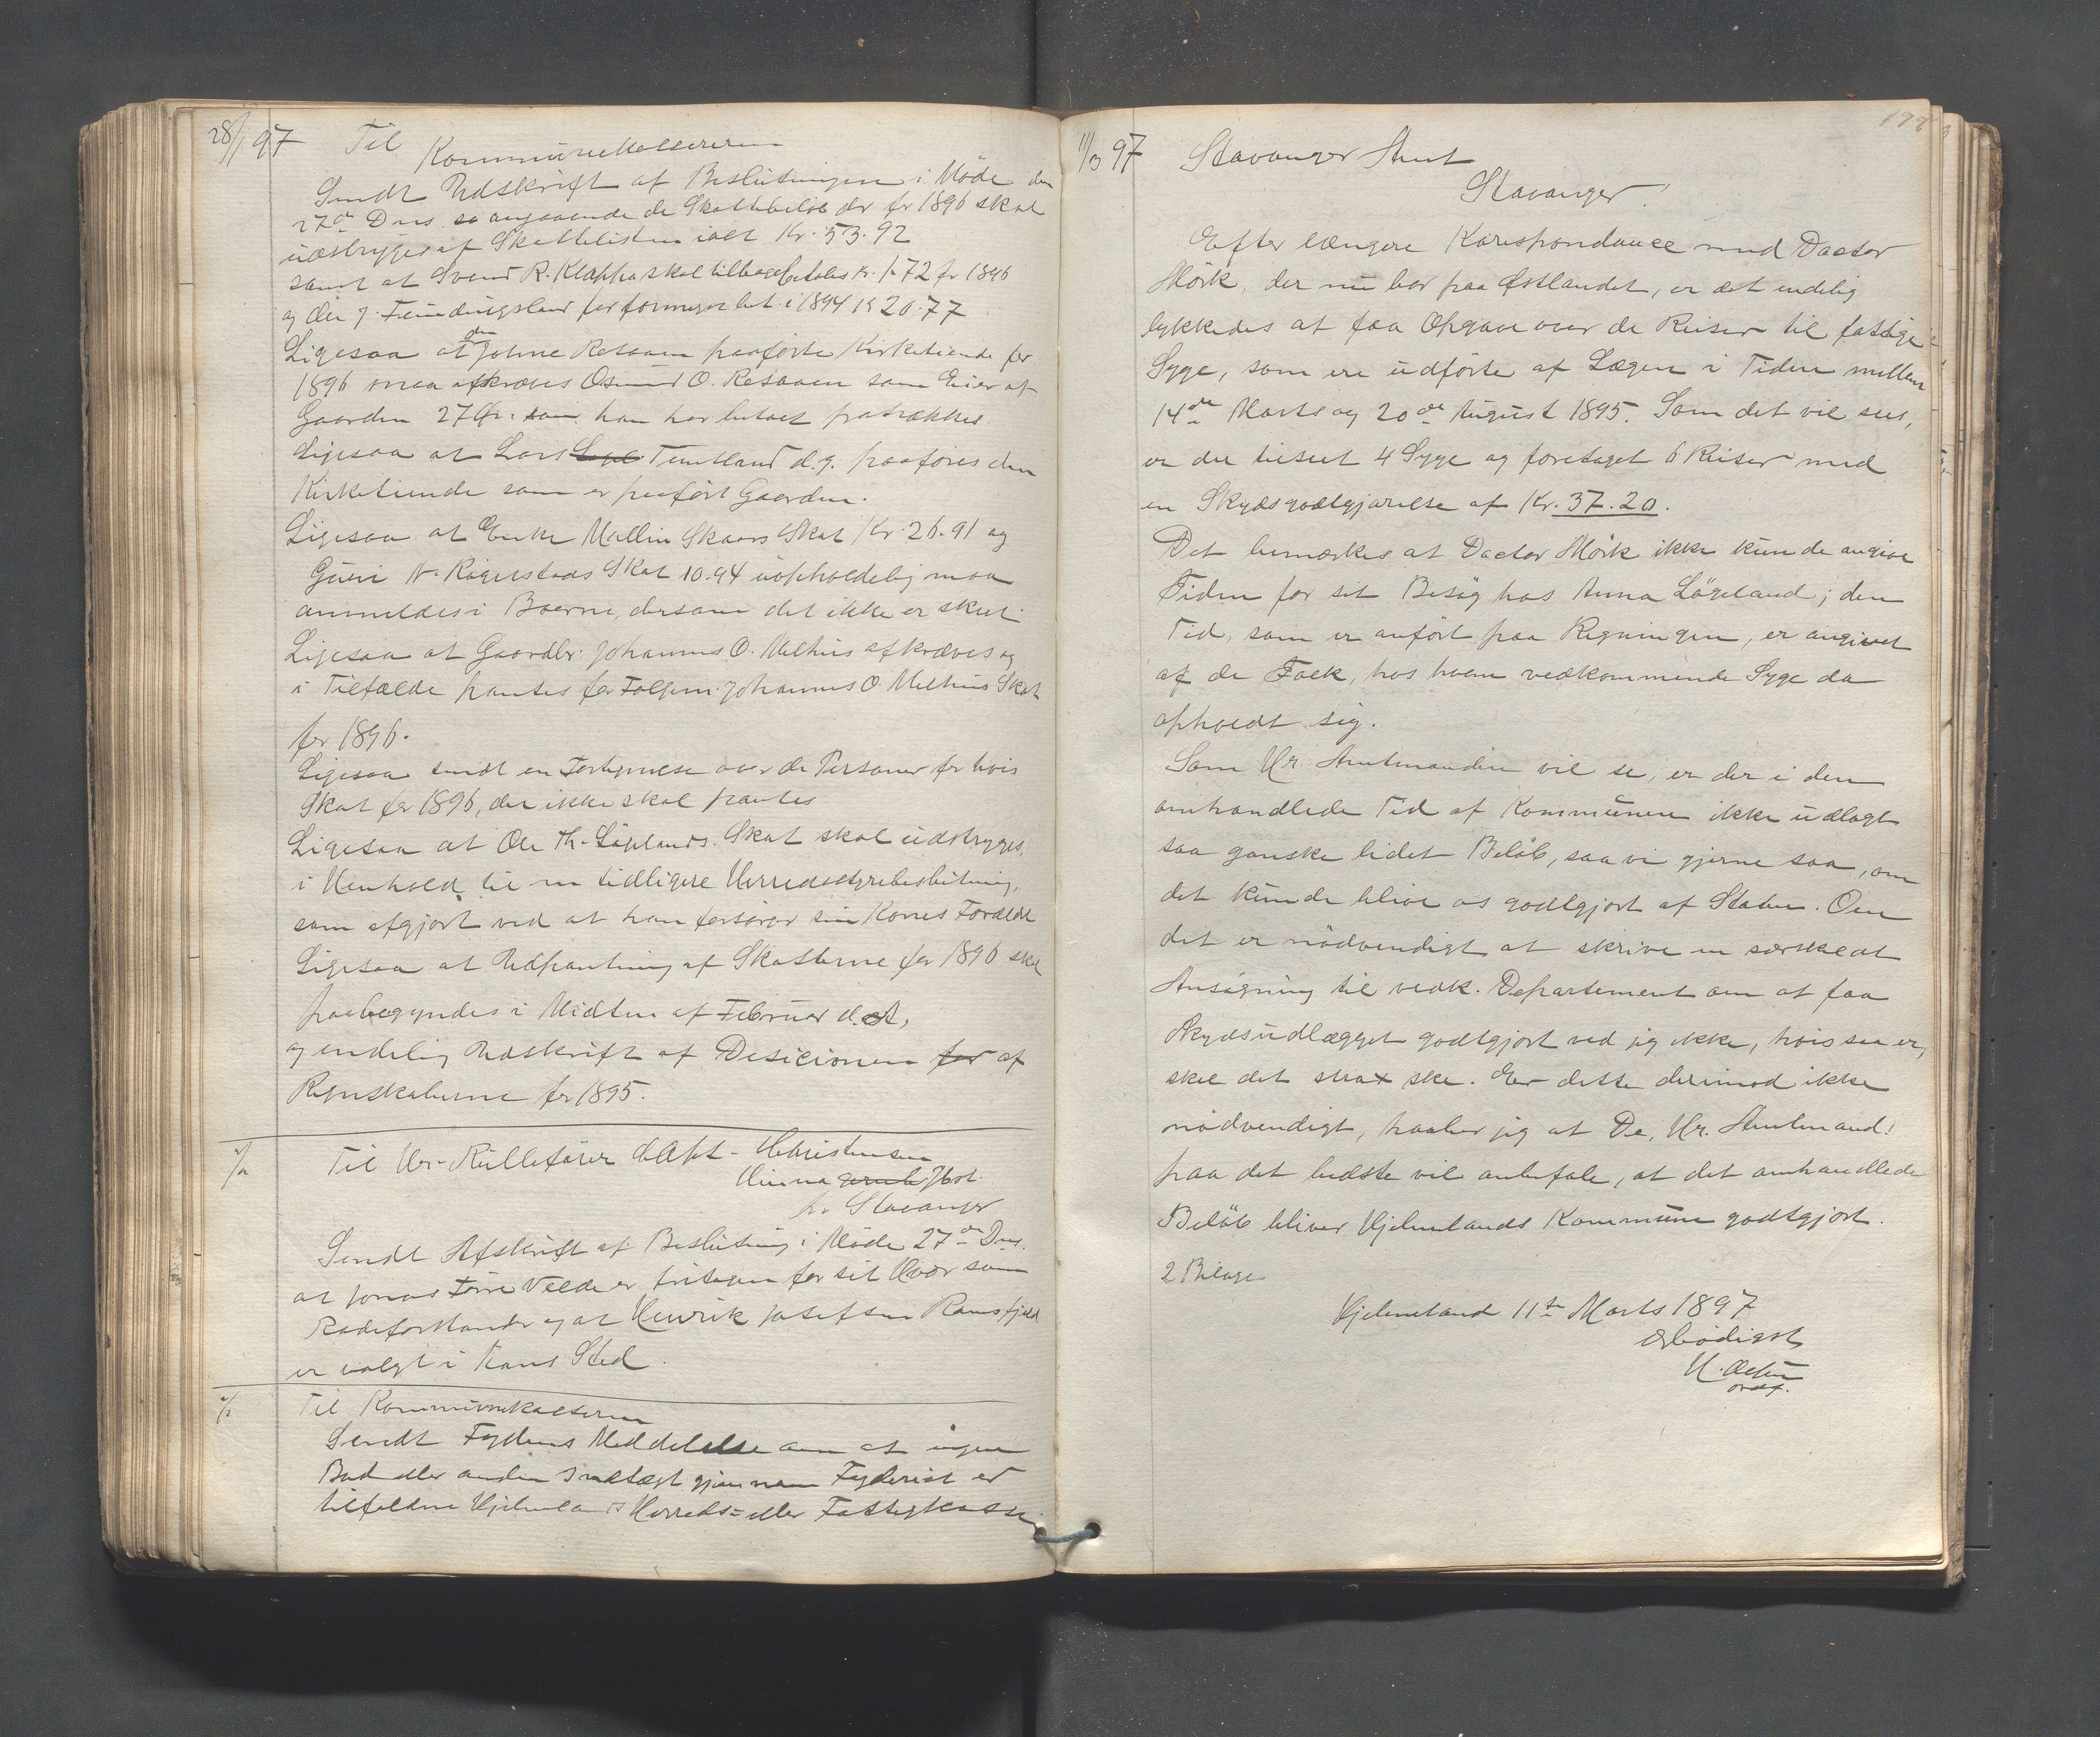 28/1 97 Til
Kommunekassereren
Sendt Udskrift af Beslutningen i Møde den
27de Dns angaaende de Skattebeløb der for 1896 skal
udstryges af Skattelisten ialt Kr. 53.92
samt at Svend R. Klappa skal tilbagebetales Kr. 1.72 for 1896
og den g. for formeget bet. i 1894 Kr 20.77
Ligesaa at den Johne Resaaen paaførte Kirketiende for
1896 maa afkræves Osmund O. Resaaen som Eier af
Gaarden 27 Øre som han har betalt fratrækkes
Ligesaa at Lars Tentland d.y. paaføres den
Kirketiende som er paaført Gaarden.
Ligesaa at Enke Mallin Skaars Skat Kr. 26.91 og
Guri N. Ragnstads Skat 10.94 uopholdelig maa
anmeldes i Boerne, dersom det ikke er skeet.
Ligesaa at Gaardbr. Johannes O. Melhus afkræves og
i Tilfælde pantes for Følgem. Johannes O. Melhus Skat
for 1896.
Ligesaa sendt en Fortegnelse over de Personer for hvis
Skat for 1896, der ikke skal pantes
Ligesaa at Ole Th. Løgelands Skat skal udstryges,
i Henhold til en tidligere Herredsstyrebeslutning,
som afgjort ved at han forsørger sin Kones Forældre
Ligesaa at Udpantning af Skatterne for 1896 skal
paabegyndes i Midten af Februar d.A.,
og endelig Udskrift af Desicionen for af
Regnskaberne for 1895.
Til Hr. Rullefører Capt. Christensen
Hinna Post.
pr. Stavanger
Sendt Afskrift af Beslutning i Møde 27de Dns.
at Jonas Tørre Velde er fritagen for sit Hverv som
Rodeforstander og at Henrik Josefsen Ramsfjeld
er valgt i hans Sted.
Til Kommunekasseren
Sendt Fogdens Meddelelse om at ingen
Bod eller anden Indtægt gjennem Fogderiet er
tilfalden Hjelmelands Herreds- eller Fattigkasse
11/3 97 Stavanger Amt
Stavanger!
Efter længere Korespondance med Doctor
Mörk, der nu bor paa Østlandet, er det endelig
lykkedes at faa Opgave over de Reiser til fattige
Syge, som ere udførte af Lægen i Tiden mellem
14de Marts og 20de August 1895. Som det vil sees,
er der tilseet 4 Syge og foretaget 6 Reiser med
en Skydsgodtgjørelse af Kr. 37.20.
Det bemærkes at Doctor Mörk ikke kunde angive
Tiden for sit Besøg hos Anna Løgeland; den
Tid, som er anført paa Regningen, er angivet
af de Folk, hos hvem vedkommende Syge da
opholdt sig.
Som Hr. Amtmanden vil se, er der i den
omhandlede Tid af Kommunen ikke udlagt
saa ganske lidet Beløb, saa vi gjerne saa, om
det kunde blive os godtgjort af Staten. Om
det er nødvendigt at skrive en særskildt
Ansøgning til vedk. Departement om at faa
Skydsudlægget godtgjort ved jeg ikke, hvis saa er,
skal det strax ske. Er dette derimod ikke
nødvendigt, haaber jeg at De, Hr. Amtmand!
paa det bedste vil anbefale, at det omhandlede
Beløb bliver Hjelmelands Kommune godtgjort.
2 Bilage
Hjelmeland 11te Marts 1897
Ærbødigst
ordf.